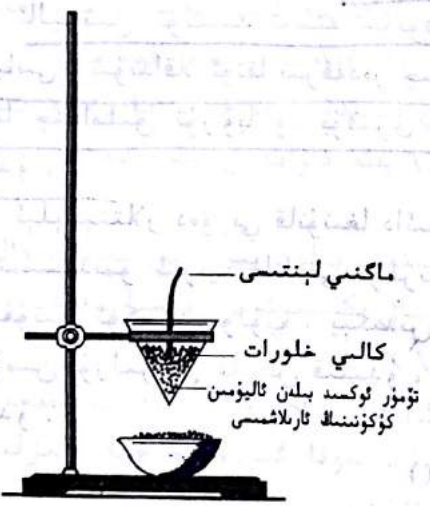 ماگنىي لېنتىسى
كالىي خلورات
تۆمۈر ئوكسىد بىلەن ئاليۇمىن
كۇكۇنىنىڭ ئارىلاشمىسى